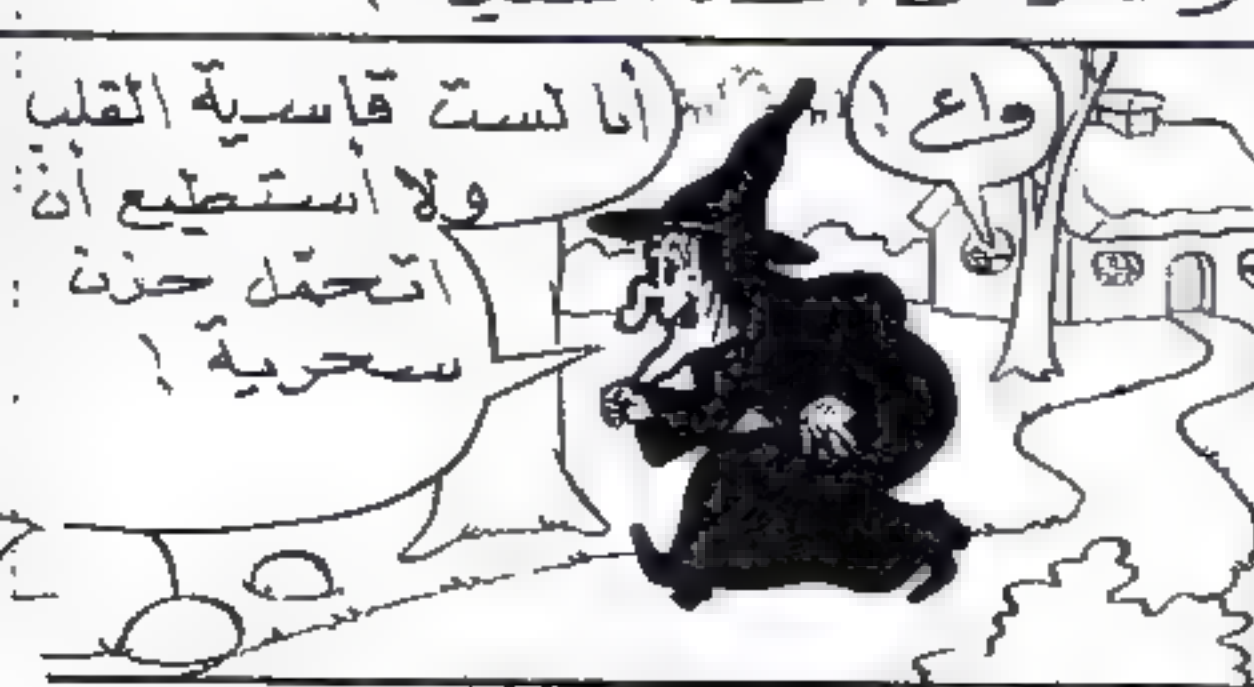 واع !
أنا لست قاسية القلب
ولا أستطيع أن
اتحمّل حزن
سحرية !